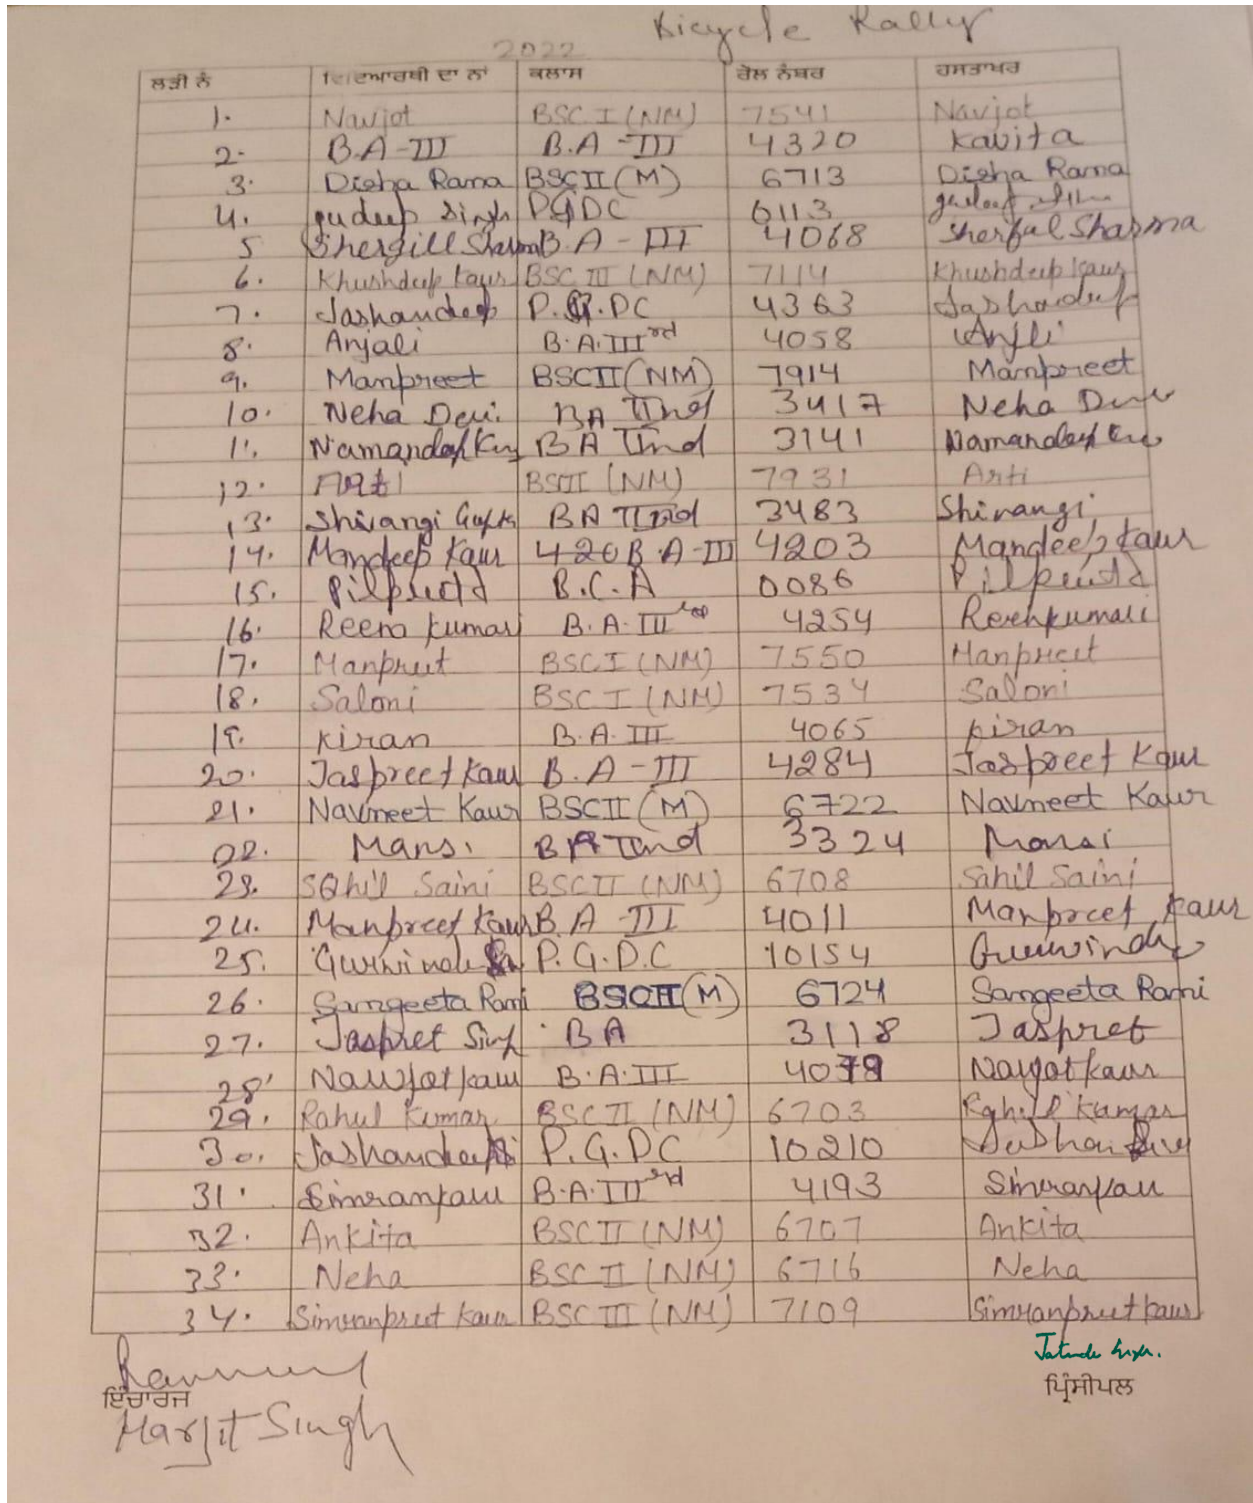 Bicycle Rally
2022
ਲੜੀ ਨੰ ਵਿਦਿਆਰਥੀ ਦਾ ਨਾਂ ਕਲਾਸ ਰੋਲ ਨੰਬਰ ਹਸਤਾਖਰ
1. Navjot BSC I (NM) 7541 Navjot
2. B.A-III B.A-III 4320 Kavita
3. Disha Rana BSC II (M) 6713 Disha Rana
4. gudeep Singh PGDC 0113
5 Shergill Sharma B.A-III 4068 Sharma
6. Khushdeep Kaur BSC III (NM) 7114 Khushdeep Kaur
7. Jashandeep P.G.DC 4363 Jashandeep
8. Anjali B.A.III rd 4058 Anjli
9. Manpreet BSC II (NM) 7914 Manpreet
10. Neha Devi. BA IInd 3417 Neha Devi
11. BA IInd 3141
12. Arti BSC II (NM) 7931 Arti
13. Shivangi Gupta BA IInd 3483 Shivangi
14. Mandeep Kaur 420 B.A-III 4203 Mandeep Kaur
15. B.C.A 0086
16. Reena Kumari B.A.III rd 4254 Reenkumari
17. Manpreet BSC I (NM) 7550 Manpreet
18. Saloni BSC I (NM) 7534 Saloni
19. Kiran B.A.III 4065 Kiran
20. Jaspreet Kaur B.A-III 4284 Jaspreet Kaur
21. Navneet Kaur BSC II (M) 6722 Navneet Kaur
22. Mansi BA IInd 3324 Mansi
23. Sahil Saini BSC II (NM) 6708 Sahil Saini
24. Manpreet Kaur B.A-III 4011 Manpreet Kaur
25. P.G.D.C 10154 Gurwinder
26. Sangeeta Rani BSC II (M) 6724 Sangeeta Rani
27. Jaspret Singh BA 3118 Jaspret
28. Navjot kaur B.A.III 4079 Navjot kaur
29. Rahul Kumar BSC II (NM) 6703 Rahul Kumar
30. P.G.DC 10210
31. Simrankaur B.A.III rd 4193 Simrankaur
32. Ankita BSC II (NM) 6707 Ankita
33. Neha BSC II (NM) 6716 Neha
34. Simranpreet Kaur BSC III (NM) 7109 Simranpreet Kaur
ਇੰਚਾਰਜ
ਪ੍ਰਿੰਸੀਪਲ
Harjit Singh